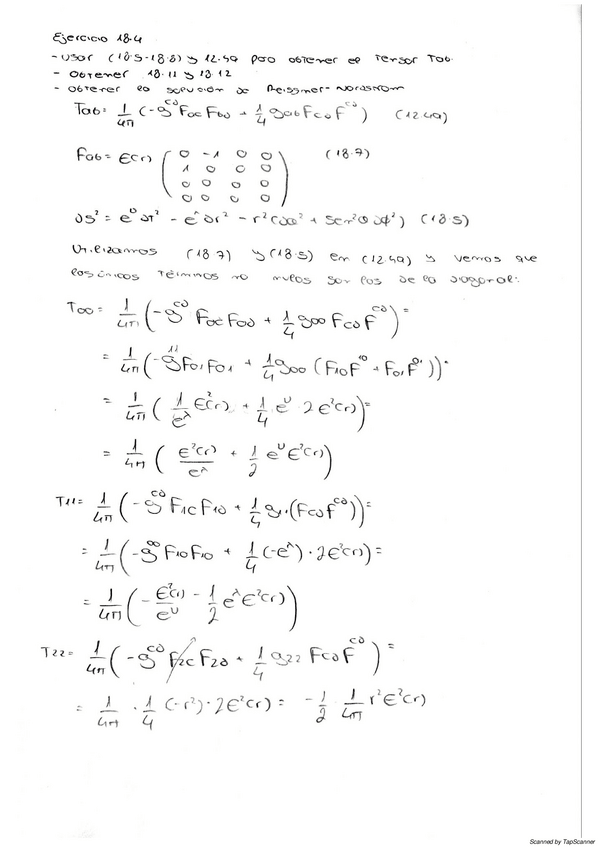 Ejercicio 18.4
- Usar (18.5-18.8) y 12.49 para obtener el tensor Tab.
- Obtener 18.11 y 18.12
- Obtener la solución de Reissner-Nordstrom
Tab = 1/4π (-g^cd Fac Fbd + 1/4 gab Fcd F^cd) (12.49)
Fab = E(r) (0 -1 0 0 (18.7)
1 0 0 0
0 0 0 0
0 0 0 0)
ds² = e^υ dt² - e^λ dr² - r²(dθ² + sen²θ dϕ²) (18.5)
Utilizamos (18.7) y (18.5) en (12.49) y vemos que
los únicos términos no nulos son los de la diagonal:
T00 = 1/4π (-g^cd F0c F0d + 1/4 g00 Fcd F^cd) =
= 1/4π (-g^11 F01 F01 + 1/4 g00 (F10 F^10 + F01 F^01)) =
= 1/4π (1/e^λ E²(r) + 1/4 e^υ 2E²(r)) =
= 1/4π (E²(r)/e^λ + 1/2 e^υ E²(r))
T11 = 1/4π (-g^cd F1c F1d + 1/4 g11 (Fcd F^cd)) =
= 1/4π (-g^00 F10 F10 + 1/4 (-e^λ) · 2E²(r)) =
= 1/4π (-E²(r)/e^υ - 1/2 e^λ E²(r))
T22 = 1/4π (-g^cd F2c F2d + 1/4 g22 Fcd F^cd) =
= 1/4π · 1/4 (-r²) · 2E²(r) = -1/2 1/4π r² E²(r)
Scanned by TapScanner